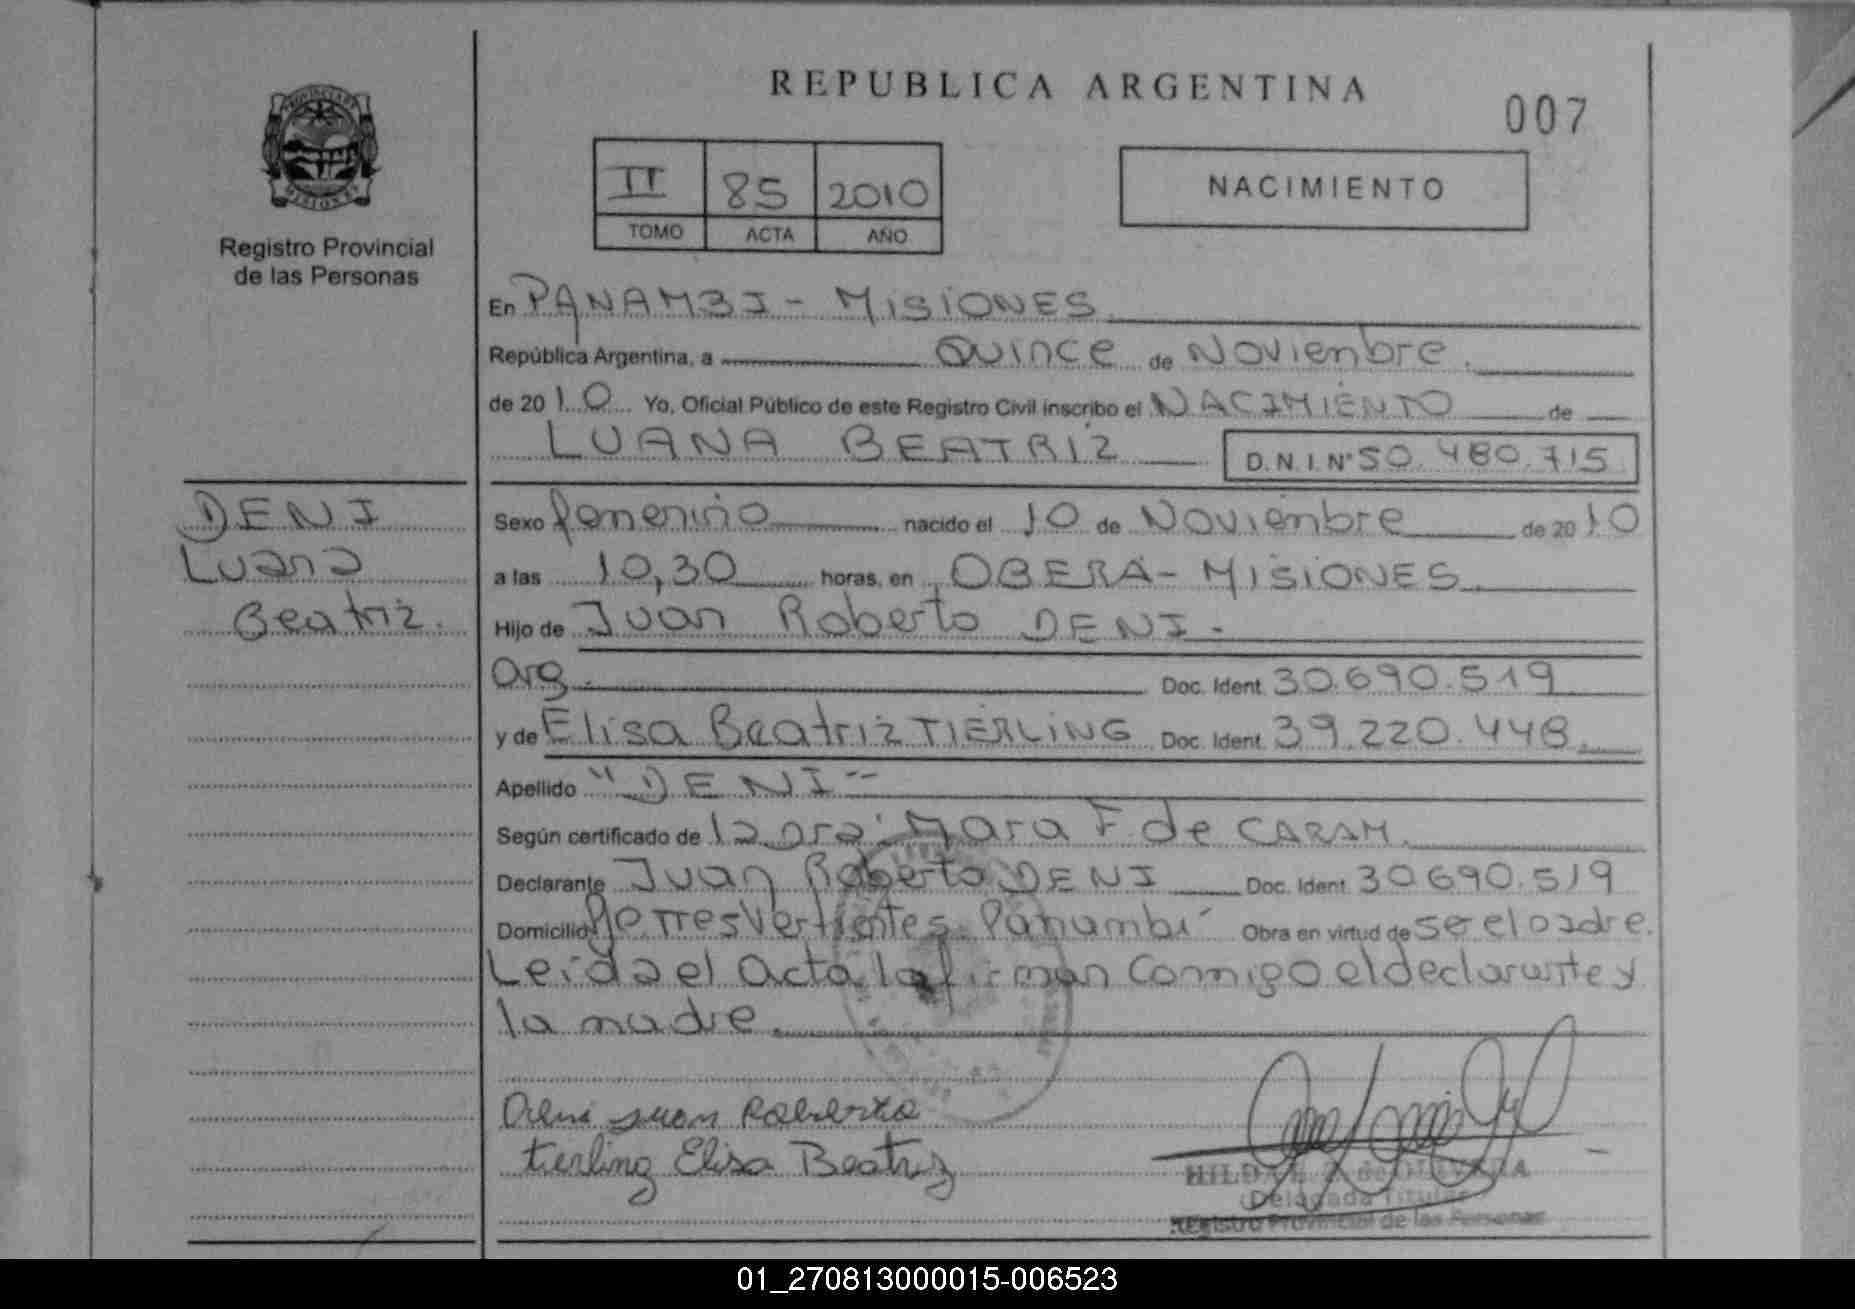 REPUBLICA ARGENTINA
007
II 85 2010
TOMO ACTA AÑO
NACIMIENTO
Registro Provincial
de las Personas
En PANAMBI - MISIONES
República Argentina, a Quince de Noviembre.
de 2010 Yo, Oficial Público de este Registro Civil inscribo el NACIMIENTO de
LUANA BEATRIZ D.N.I. N° 50.480.715
DENI
Luana
Beatriz.
Sexo femenino nacido el 10 de Noviembre de 2010
a las 10,30 horas, en OBERA - MISIONES
Hijo de Juan Roberto DENI.
Arg. Doc. Ident. 30.690.519
y de Elisa Beatriz TIERLING Doc. Ident. 39.220.448.
Apellido "DENI"
Según certificado de la Dra. Mara F. de CARAM.
Declarante Juan Roberto DENI Doc. Ident. 30690.519
Domicilio Vertientes. Panambi Obra en virtud de ser el padre.
Leida el Acta la firman Conmigo el declarante y
la madre.
Deni Juan Roberto
Tierling Elisa Beatriz
HILDA de OLIVERA
Delegada Titular
Registro Provincial de las Personas
01_270813000015-006523